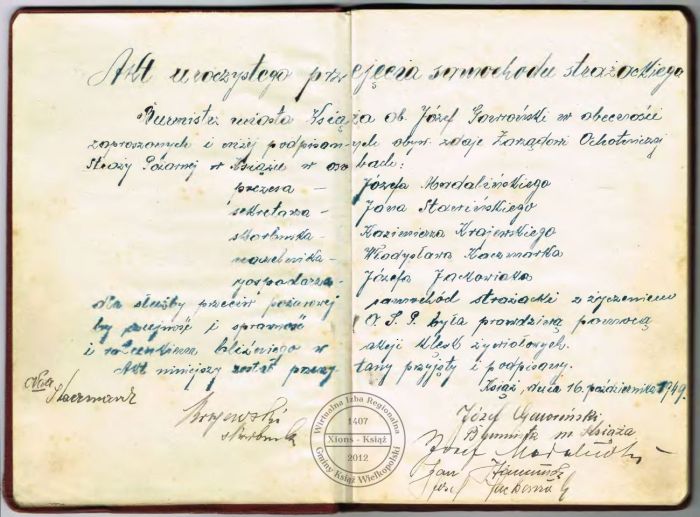 Akt uroczystego przejęcia samochodu strażackiego
Burmistrz miasta Książa ob. Józef Gawroński w obecności
zaproszonych i niżej podpisanych obyw. zdaje Zarządowi Ochotniczej
Straży Pożarnej w Książu w osobach:
prezesa – Józefa Madalińskiego
sekretarza – Jana
skarbnika – Kazimierza Krajewskiego
naczelnika – Władysława Kaczmarka
gospodarza – Józefa Jackowiaka
dla służby przeciw pożarowej samochód strażacki z życzeniem
by i sprawność O.S.P. była prawdziwą pomocą
i bliźniego w akcji klęsk żywiołowych.
Akt niniejszy został przeczytany przyjęty i podpisany.
Książ, dnia 16. października 1949.
Kaczmarek
Krajewski
skarbnik
Józef Gawroński
Burmistrz m Książa
Józef Madaliński
Jan
Józef
Wirtualna Izba Regionalna
1407
Xions - Książ
2012
Gminy Książ Wielkopolski